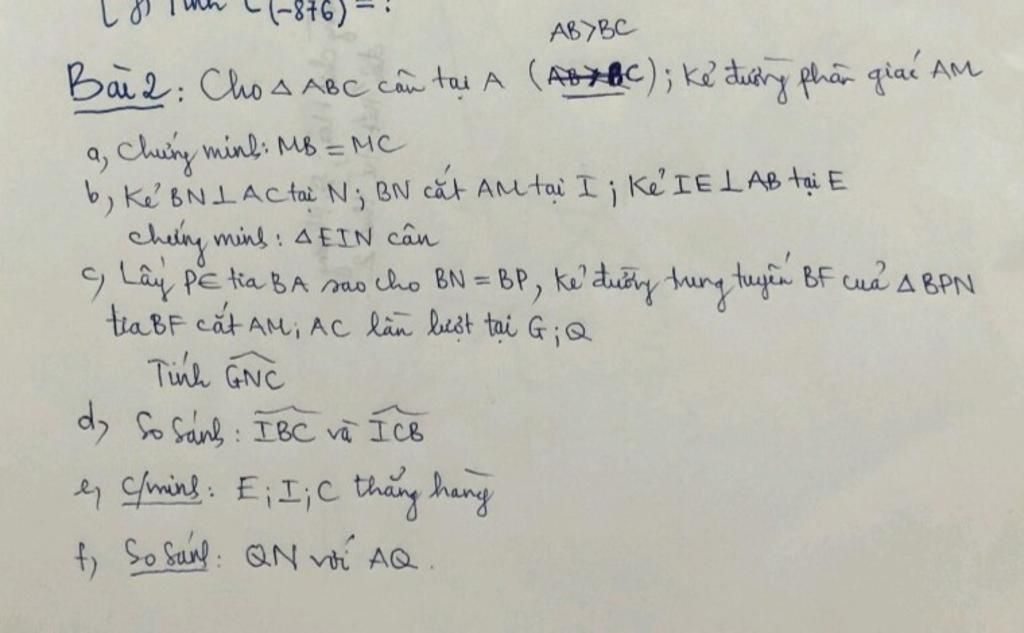 Tính (-876) = ?
AB>BC
Bài 2: Cho △ ABC cân tại A ( ); Kẻ đường phân giác AM
a, Chứng minh: MB = MC
b, Kẻ BN⊥AC tại N; BN cắt AM tại I; Kẻ IE⊥AB tại E
chứng minh: △EIN cân
c, Lấy P∈ tia BA sao cho BN = BP, Kẻ đường trung tuyến BF của △ BPN
tia BF cắt AM; AC lần lượt tại G;Q
Tính \widehat{GNC}
d, So sánh: \widehat{IBC} và \widehat{ICB}
e, C/minh: E;I;C thẳng hàng
f, So sánh: QN với AQ.